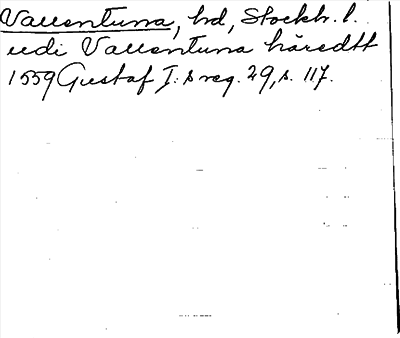 Vallentuna, hd, Stockh. l.
udi Vallentuna häredtt
1559 Gustaf I:s reg. 29, s. 117.